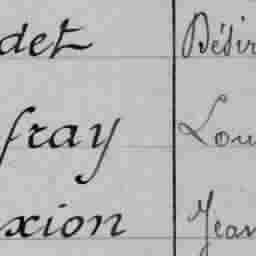 det Désir
fray Lou
xion Jean